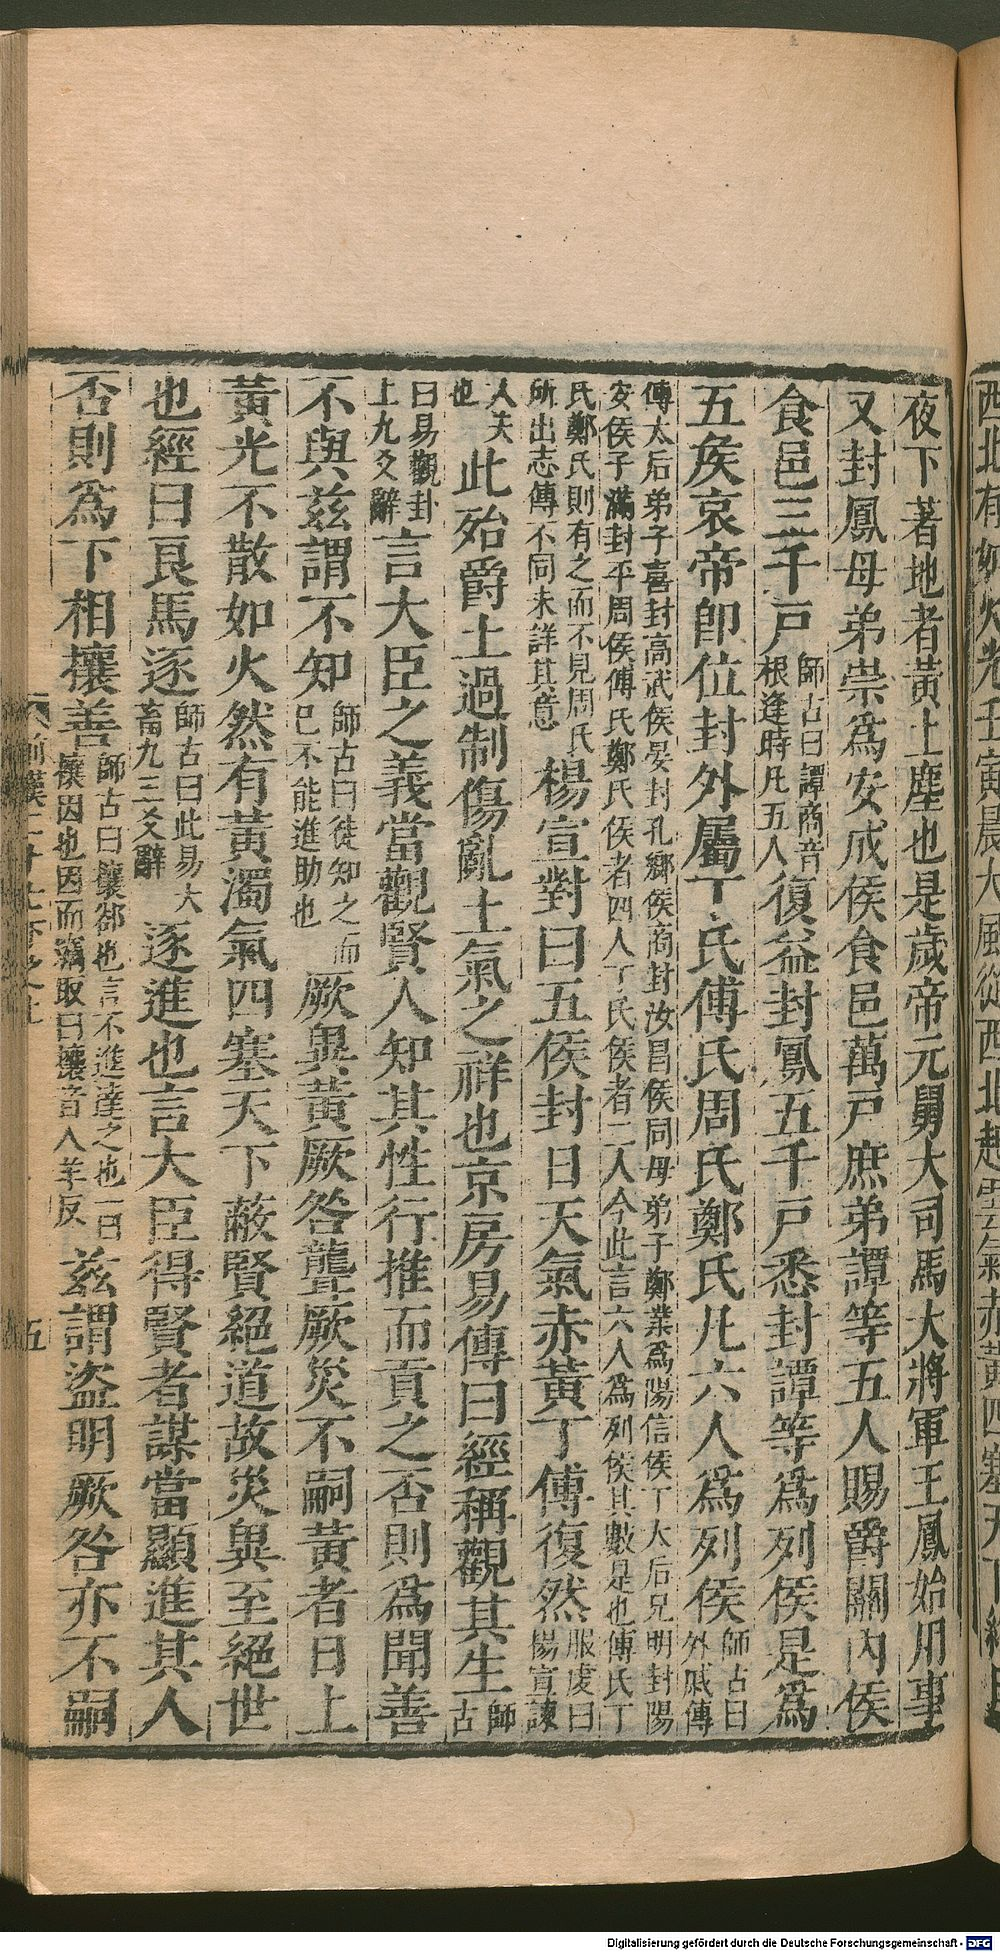 夜下著地者黃土塵也是歲帝元舅大司馬大將軍王鳳始用事
又封鳳母弟崇爲安成侯食邑萬戸庶弟譚等五人賜爵關內侯
食邑三千戸師古曰譚商音根逢時凡五人復益封鳳五千戸悉封譚等爲列侯是爲
五侯哀帝即位封外屬丁氏傅氏周氏鄭氏凡六人爲列侯師古曰外戚傳
傅太后弟子喜封高武侯晏封孔鄉侯商封汝昌侯同母弟子鄭業爲陽信侯丁太后兄明封陽
安侯子滿封平周侯傅氏鄭氏侯者四人丁氏侯者二人今此言六人爲列侯其數是也傅氏丁
氏鄭氏則有之而不見周氏所出志傳不同未詳其意楊宣對曰五侯封日天氣赤黃丁傅復然服虔曰楊宣諫
大夫也此殆爵土過制傷亂土氣之祥也京房易傳曰經稱觀其生師古
曰易觀卦上九爻辭言大臣之義當觀賢人知其性行推而貢之否則爲聞善
不與茲謂不知師古曰徒知之而已不能進助也厥異黃厥咎聾厥災不嗣黃者日上
黃光不散如火然有黃濁氣四塞天下蔽賢絕道故災異至絕世
也經曰良馬逐師古曰此易大畜九三爻辭逐進也言大臣得賢者謀當顯進其人
否則爲下相攘善師古曰攘郤也言不進達之也一曰攘因也因而竊取曰攘音人羊反茲謂盜明厥咎亦不嗣
五
Digitalisierung gefördert durch die Deutsche Forschungsgemeinschaft - DFG